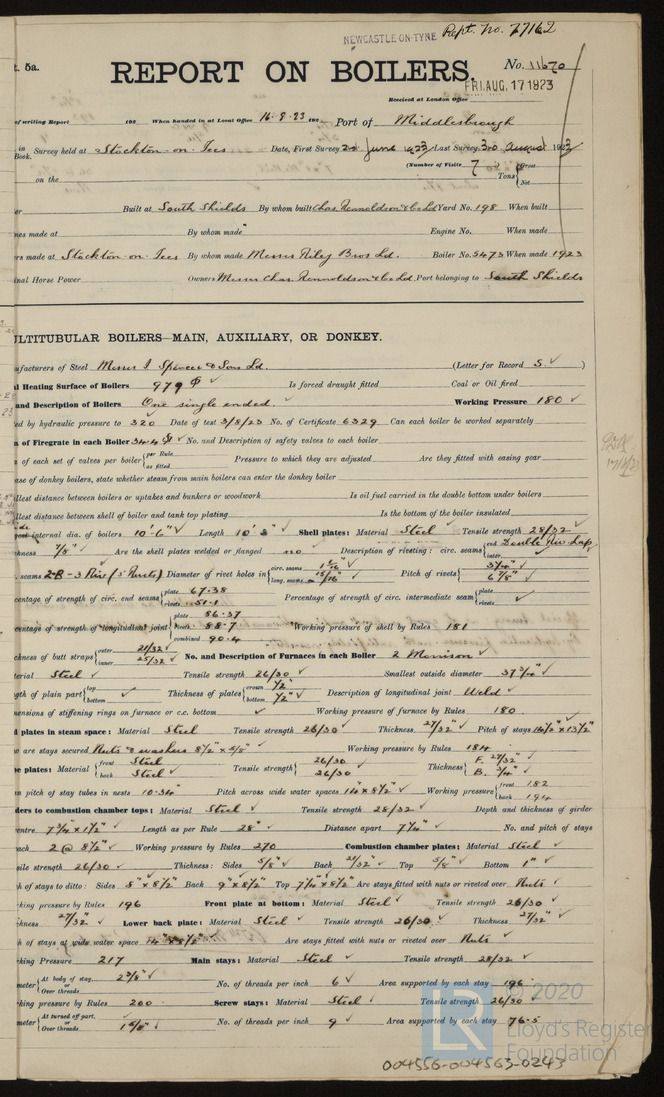 NEWCASTLE-ON-TYNE Rept. No. 77162
t. 5a. REPORT ON BOILERS. No. 11670
Received at London Office FRI. AUG. 17 1923
of writing Report 192 When handed in at Local Office 16.8.23 192 Port of Middlesbrough
in Book. Survey held at Stockton-on-Tees Date, First Survey 22 June 1923 Last Survey 3rd August 1923
(Number of Visits 7) Gross
on the Tons Net
Built at South Shields By whom built Chas Rennoldson & Co Ld Yard No. 198 When built
nes made at By whom made Engine No. When made
rs made at Stockton-on-Tees By whom made Messrs Riley Bros Ld. Boiler No. 5473 When made 1923
inal Horse Power Owners Messrs Chas. Rennoldson & Co Ld. Port belonging to South Shields
ULTITUBULAR BOILERS—MAIN, AUXILIARY, OR DONKEY.
ufacturers of Steel Messrs J Spencer & Sons Ld. (Letter for Record S ✓ )
l Heating Surface of Boilers 979 ✓ Is forced draught fitted Coal or Oil fired
and Description of Boilers One single ended. ✓ Working Pressure 180 ✓
ed by hydraulic pressure to 320 Date of test 3/8/23 No. of Certificate 6329 Can each boiler be worked separately
a of Firegrate in each Boiler 34.4 ✓ No. and Description of safety valves to each boiler
a of each set of valves per boiler per Rule as fitted Pressure to which they are adjusted Are they fitted with easing gear
ase of donkey boilers, state whether steam from main boilers can enter the donkey boiler
llest distance between boilers or uptakes and bunkers or woodwork Is oil fuel carried in the double bottom under boilers
llest distance between shell of boiler and tank top plating Is the bottom of the boiler insulated
gest internal dia. of boilers 10'-6" ✓ Length 10'-3" ✓ Shell plates: Material Steel ✓ Tensile strength 28/32 ✓
kness 7/8" ✓ Are the shell plates welded or flanged no Description of riveting: circ. seams end Double Riv Lap inter.
. seams 2B-3 Riv (5 Rivets) Diameter of rivet holes in circ. seams 15/16 long. seams 15/16" Pitch of rivets 3 3/4" 6 7/8" ✓
centage of strength of circ. end seams plate 67.38 rivets 51.1 Percentage of strength of circ. intermediate seam plate rivets ✓
centage of strength of longitudinal joint plate 86.37 rivets 88.7 combined 90.4 Working pressure of shell by Rules 181
ckness of butt straps outer 21/32 ✓ inner 25/32 ✓ No. and Description of Furnaces in each Boiler 2 Morrison ✓
terial Steel ✓ Tensile strength 26/30 ✓ Smallest outside diameter 37 3/4" ✓
gth of plain part top bottom ✓ Thickness of plates crown 1/2" bottom 1/2" ✓ Description of longitudinal joint Weld ✓
mensions of stiffening rings on furnace or c.c. bottom ✓ Working pressure of furnace by Rules 180
d plates in steam space: Material Steel Tensile strength 26/30 ✓ Thickness 27/32" ✓ Pitch of stays 14 1/2" x 13 1/2"
w are stays secured Nuts & washers 8 1/2" x 5/8" ✓ Working pressure by Rules 184
be plates: Material front Steel back Steel ✓ Tensile strength 26/30 26/30 Thickness F. 27/32" ✓ B. 3/4" ✓
n pitch of stay tubes in nests 10.34" Pitch across wide water spaces 14" x 8 1/2" ✓ Working pressure front 182 back 194
ders to combustion chamber tops: Material Steel ✓ Tensile strength 28/32 ✓ Depth and thickness of girder
entre 7 3/4 x 1 1/2" ✓ Length as per Rule 28" ✓ Distance apart 7 1/4" ✓ No. and pitch of stays
ach 2 @ 8 1/2" ✓ Working pressure by Rules 270 Combustion chamber plates: Material Steel ✓
sile strength 26/30 ✓ Thickness: Sides 5/8" ✓ Back 21/32" ✓ Top 5/8" ✓ Bottom 1" ✓
h of stays to ditto: Sides 8" x 8 1/2" Back 9" x 8 1/2" Top 7 1/4" x 8 1/2" Are stays fitted with nuts or riveted over Nuts ✓
king pressure by Rules 196 Front plate at bottom: Material Steel ✓ Tensile strength 26/30
kness 27/32" ✓ Lower back plate: Material Steel ✓ Tensile strength 26/30 ✓ Thickness 27/32" ✓
h of stays at wide water space 14" x 8 1/2" ✓ Are stays fitted with nuts or riveted over Nuts ✓
king Pressure 217 Main stays: Material Steel ✓ Tensile strength 28/32 ✓
meter At body of stay, or Over threads 2 3/8" ✓ No. of threads per inch 6 ✓ Area supported by each stay 196
king pressure by Rules 200 Screw stays: Material Steel ✓ Tensile strength 26/30 ✓
meter At turned off part, or Over threads 1 5/8" ✓ No. of threads per inch 9 ✓ Area supported by each stay 76.5
© 2020
Lloyd's Register
Foundation
004556-004563-0243